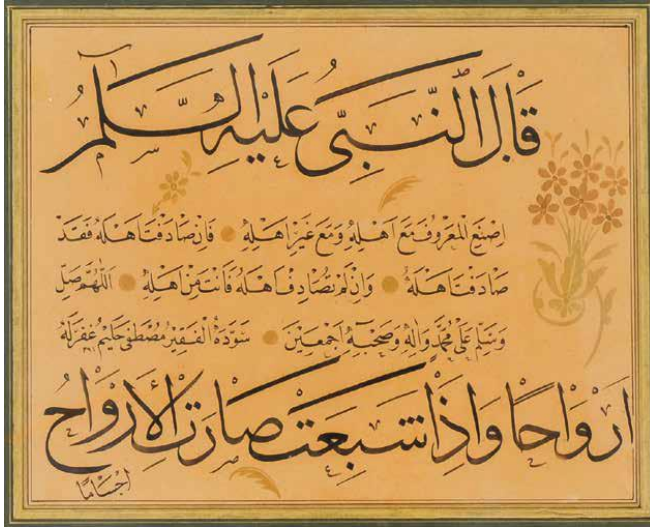 قَالَ النَّبِيُّ عَلَيْهِ السَّلَامُ
اِصْنَعِ الْمَعْرُوفَ مَعَ اَهْلِهِ وَمَعَ غَيْرِ اَهْلِهِ فَاِنْ صَادَفْتَ اَهْلَهُ فَقَدْ
صَادَفْتَ اَهْلَهُ وَاِنْ لَمْ تُصَادِفْ اَهْلَهُ فَاَنْتَ مِنْ اَهْلِهِ اَللّٰهُمَّ صَلِّ
وَسَلِّمْ عَلَى مُحَمَّدٍ وَاٰلِهِ وَصَحْبِهِ اَجْمَعِينَ سَوَّدَهُ الْفَقِيرُ مُصْطَفَى حَلِيمْ غُفِرَ لَهُ
اَرْوَاحًا وَاِذَا شَبِعَتْ صَارَتِ الْاَرْوَاحُ
اَجْسَامًا